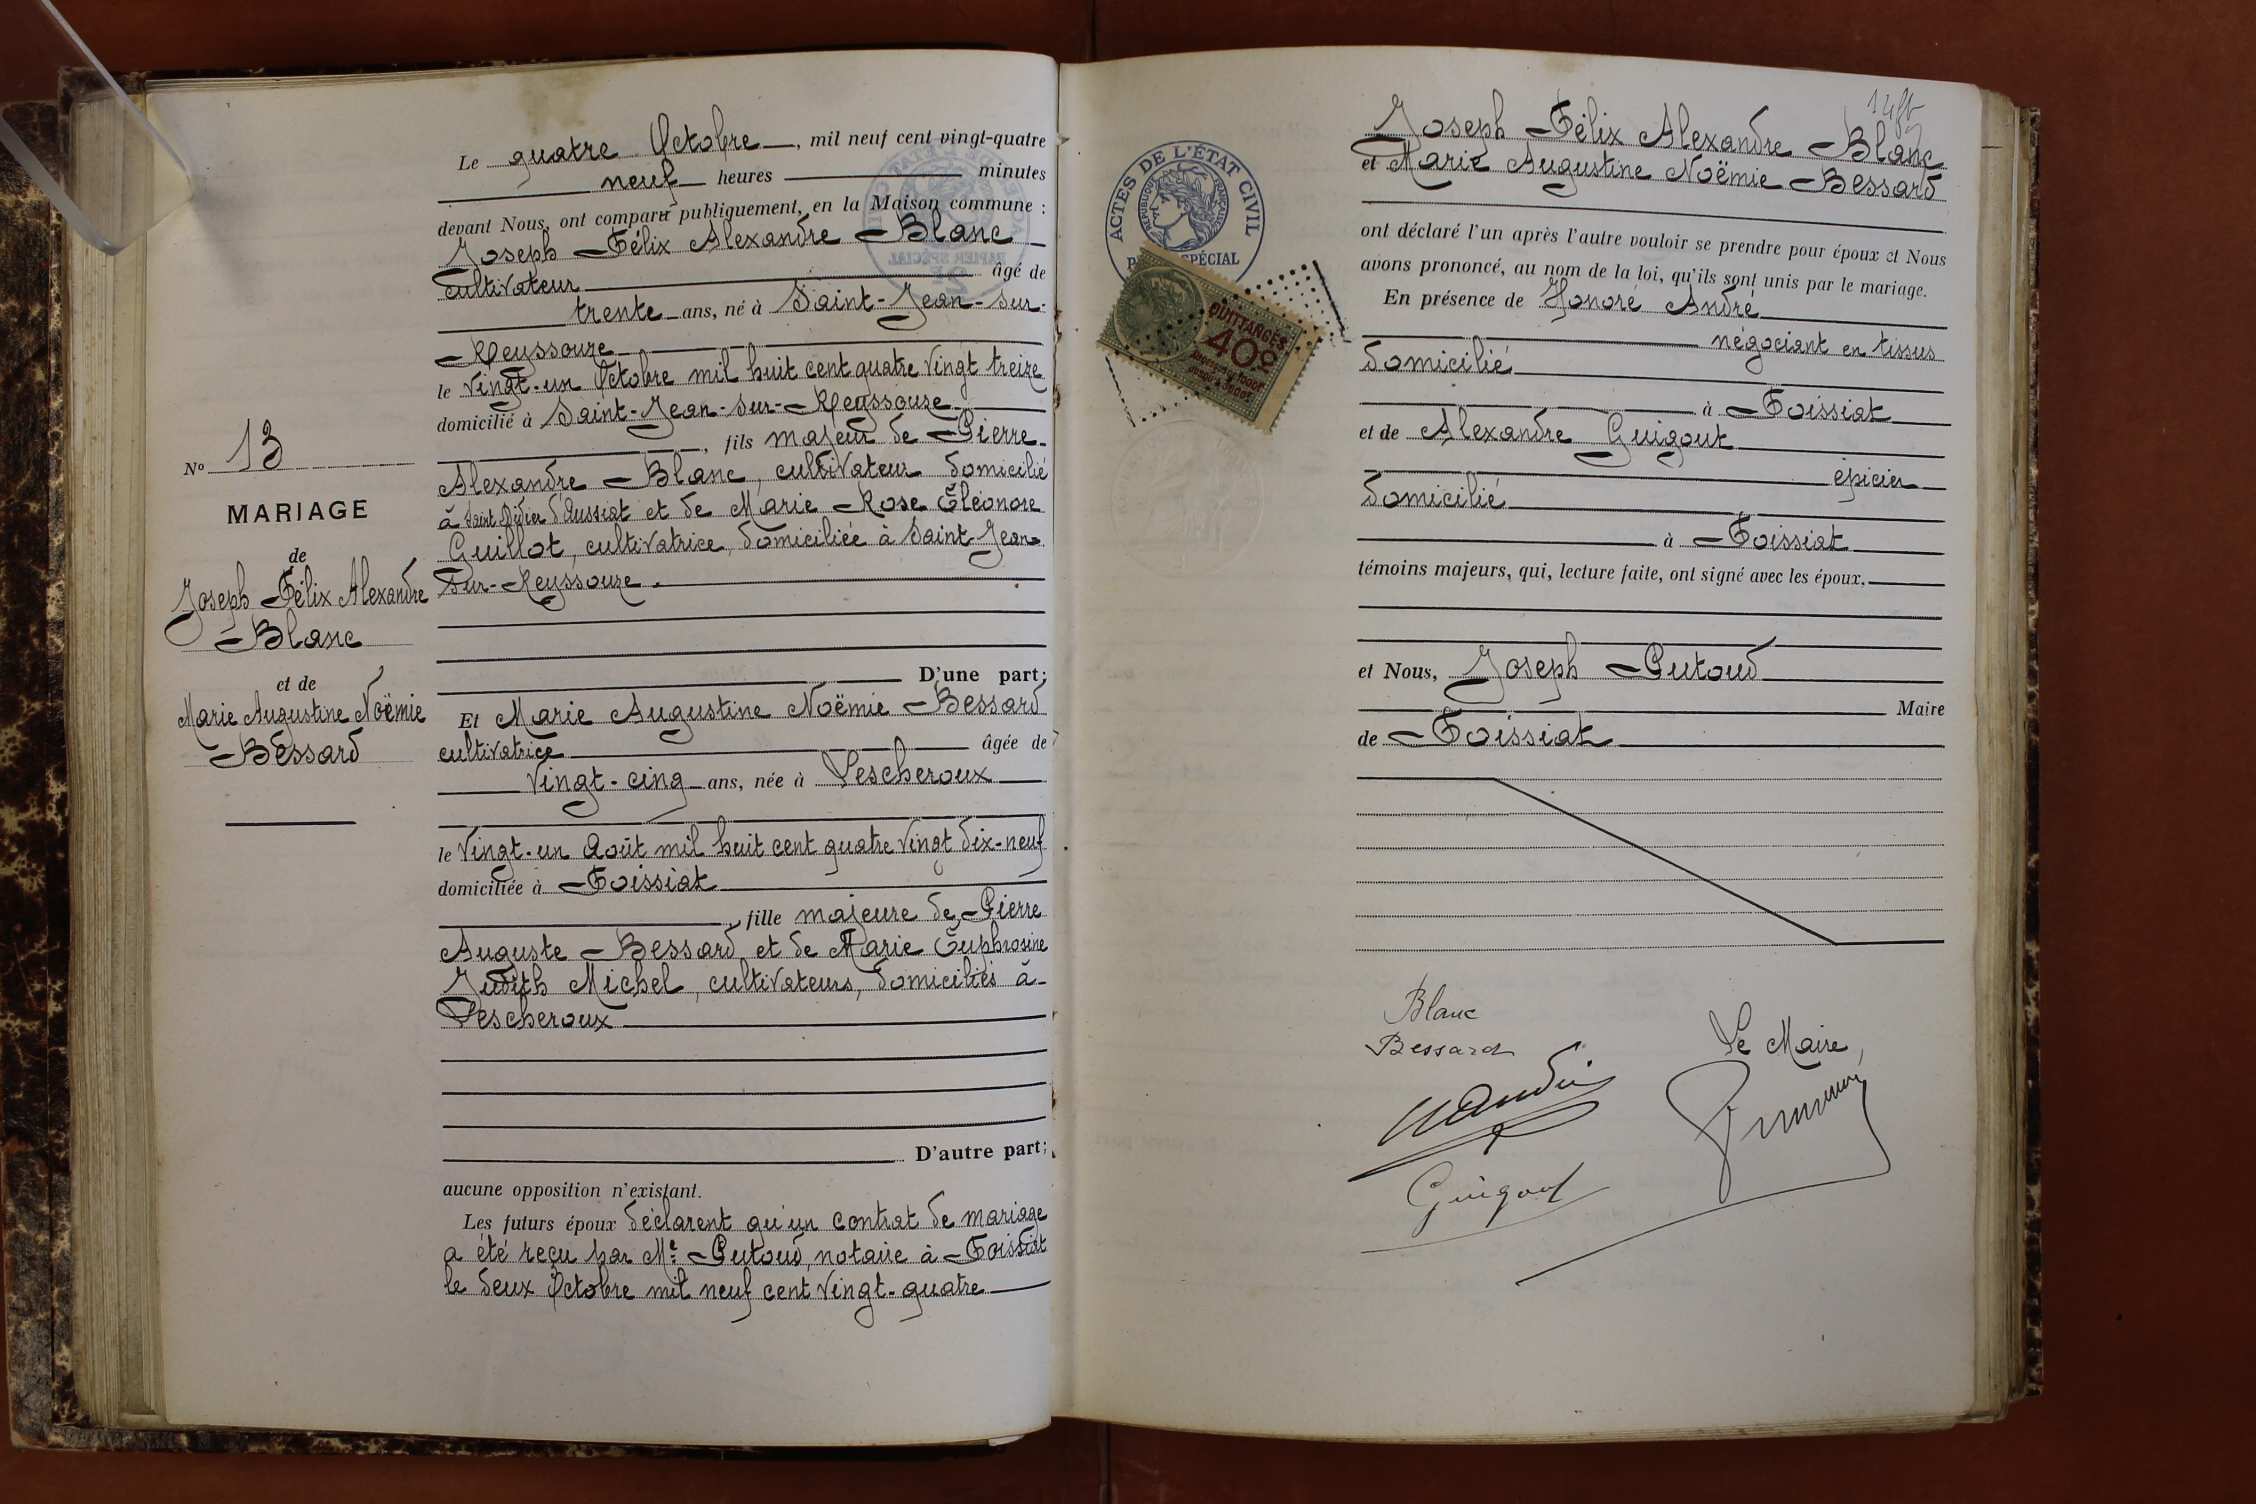 Le quatre Octobre, mil neuf cent vingt-quatre
neuf heures minutes
devant Nous, ont comparu publiquement, en la Maison commune :
Joseph Félix Alexandre Blanc
cultivateur âgé de
trente ans, né à Saint-Jean-sur-
Reyssouze
le vingt-un Octobre mil huit cent quatre vingt treize
domicilié à Saint-Jean-sur-Reyssouze
, fils majeur de Pierre
Alexandre Blanc, cultivateur domicilié
à Saint Didier d'Aussiat et de Marie Rose Éléonore
Guillot, cultivatrice, domiciliée à Saint Jean
sur-Reyssouze.
D'une part;
Et Marie Augustine Noëmie Bessard
cultivatrice âgée de
vingt-cinq ans, née à Lescheroux
le vingt-un Août mil huit cent quatre vingt dix-neuf
domiciliée à Foissiat
, fille majeure de Pierre
Auguste Bessard et de Marie Euphrosine
Judith Michel, cultivateurs, domiciliés à
Lescheroux
D'autre part;
aucune opposition n'existant.
Les futurs époux déclarent qu'un contrat de mariage
a été reçu par Me Putoud, notaire à Foissiat
le deux Octobre mil neuf cent vingt-quatre
No 13
MARIAGE
de
Joseph Félix Alexandre
Blanc
et de
Marie Augustine Noëmie
Bessard
Joseph Félix Alexandre Blanc
et Marie Augustine Noëmie Bessard
ont déclaré l'un après l'autre vouloir se prendre pour époux et Nous
avons prononcé, au nom de la loi, qu'ils sont unis par le mariage.
En présence de Honoré André
négociant en tissus
domicilié
à Foissiat
et de Alexandre Guigout
épicier
domicilié
à Foissiat
témoins majeurs, qui, lecture faite, ont signé avec les époux.
et Nous, Joseph Putoud
Maire
de Foissiat
Blanc
Bessard
Guigout
Le Maire,
ACTES DE L'ÉTAT CIVIL
RÉPUBLIQUE FRANÇAISE
SPÉCIAL
QUITTANCES
40c